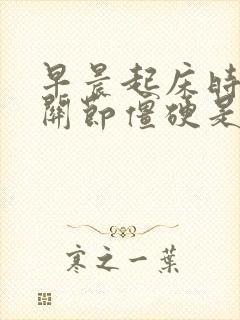 早晨起床時
關節僵硬是
寒之一葉